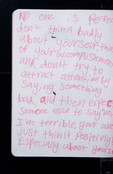 No one is perfect
don't think badly
about yourself. think
of your accomplishments
and don't try to
attract attention by
saying something
bad and then expect
someone else to say no
I'm terrible, your an
just think positively
Especially about yourself